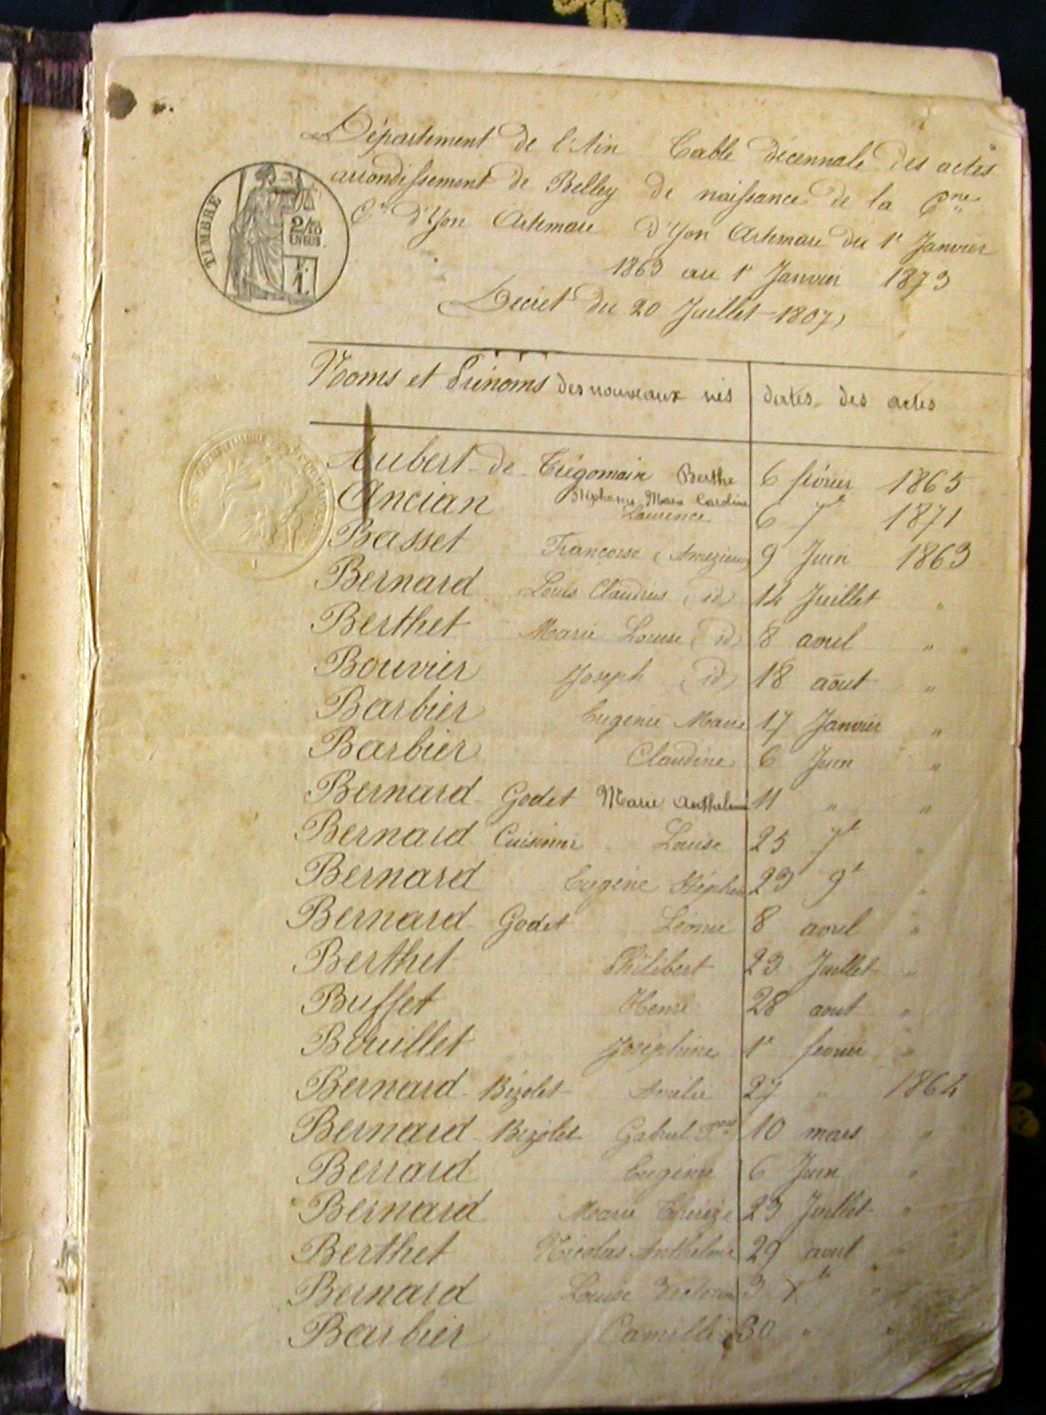 Département de l'Ain Table décennale des actes
arrondissement de Belley de naissance de la Cne
Con d'Yon Artemare d'Yon Artemare du 1r Janvier
1863 au 1r Janvier 1873
(Décret du 20 Juillet 1807)
TIMBRE
2/10
EN SUS.
1
Noms et Prénoms des nouveaux nés dates des actes
Aubert de Trégomain Berthe 6 février 1865
Stéphanie Marie Caroline
Ancian Laurence 6 7e 1871
Basset Françoise (Ameyzieu) 9 Juin 1863
Bernard Louis Claudius (id) 14 Juillet "
Berthet Marie Louise (id) 8 avril "
Bouvier Joseph (id) 18 aout "
Barbier Eugénie Marie 17 Janvier "
Barbier Claudine 6 Juin "
Bernard Godet Marie Anthelme 11 " "
Bernard Cuisinier Louise 25 7e "
Bernard Eugène Stéphen 23 9e "
Bernard Godet Léonie 8 avril "
Berthet Philibert 23 Juillet "
Buffet Henri 28 aout "
Bouillet Joséphine 1r février "
Bernard Bizolet Amélie 27 " 1864
Bernard Bizolet Gabriel 10 mars "
Berrard Eugénie 6 Juin "
Bernard Marie Thérèze 23 Juillet "
Berthet Nicolas Anthelme 29 aout "
Bernard Louise 3 Xe "
Barbier Camille 30 " "